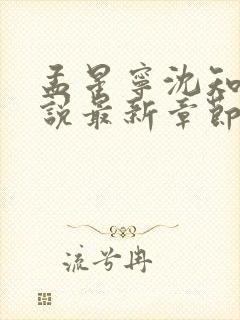 孟星寧沈知
說最新章節
流兮冉